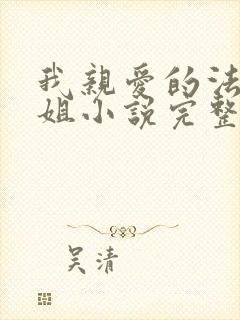 我親愛的法
姐小說完整
吴清